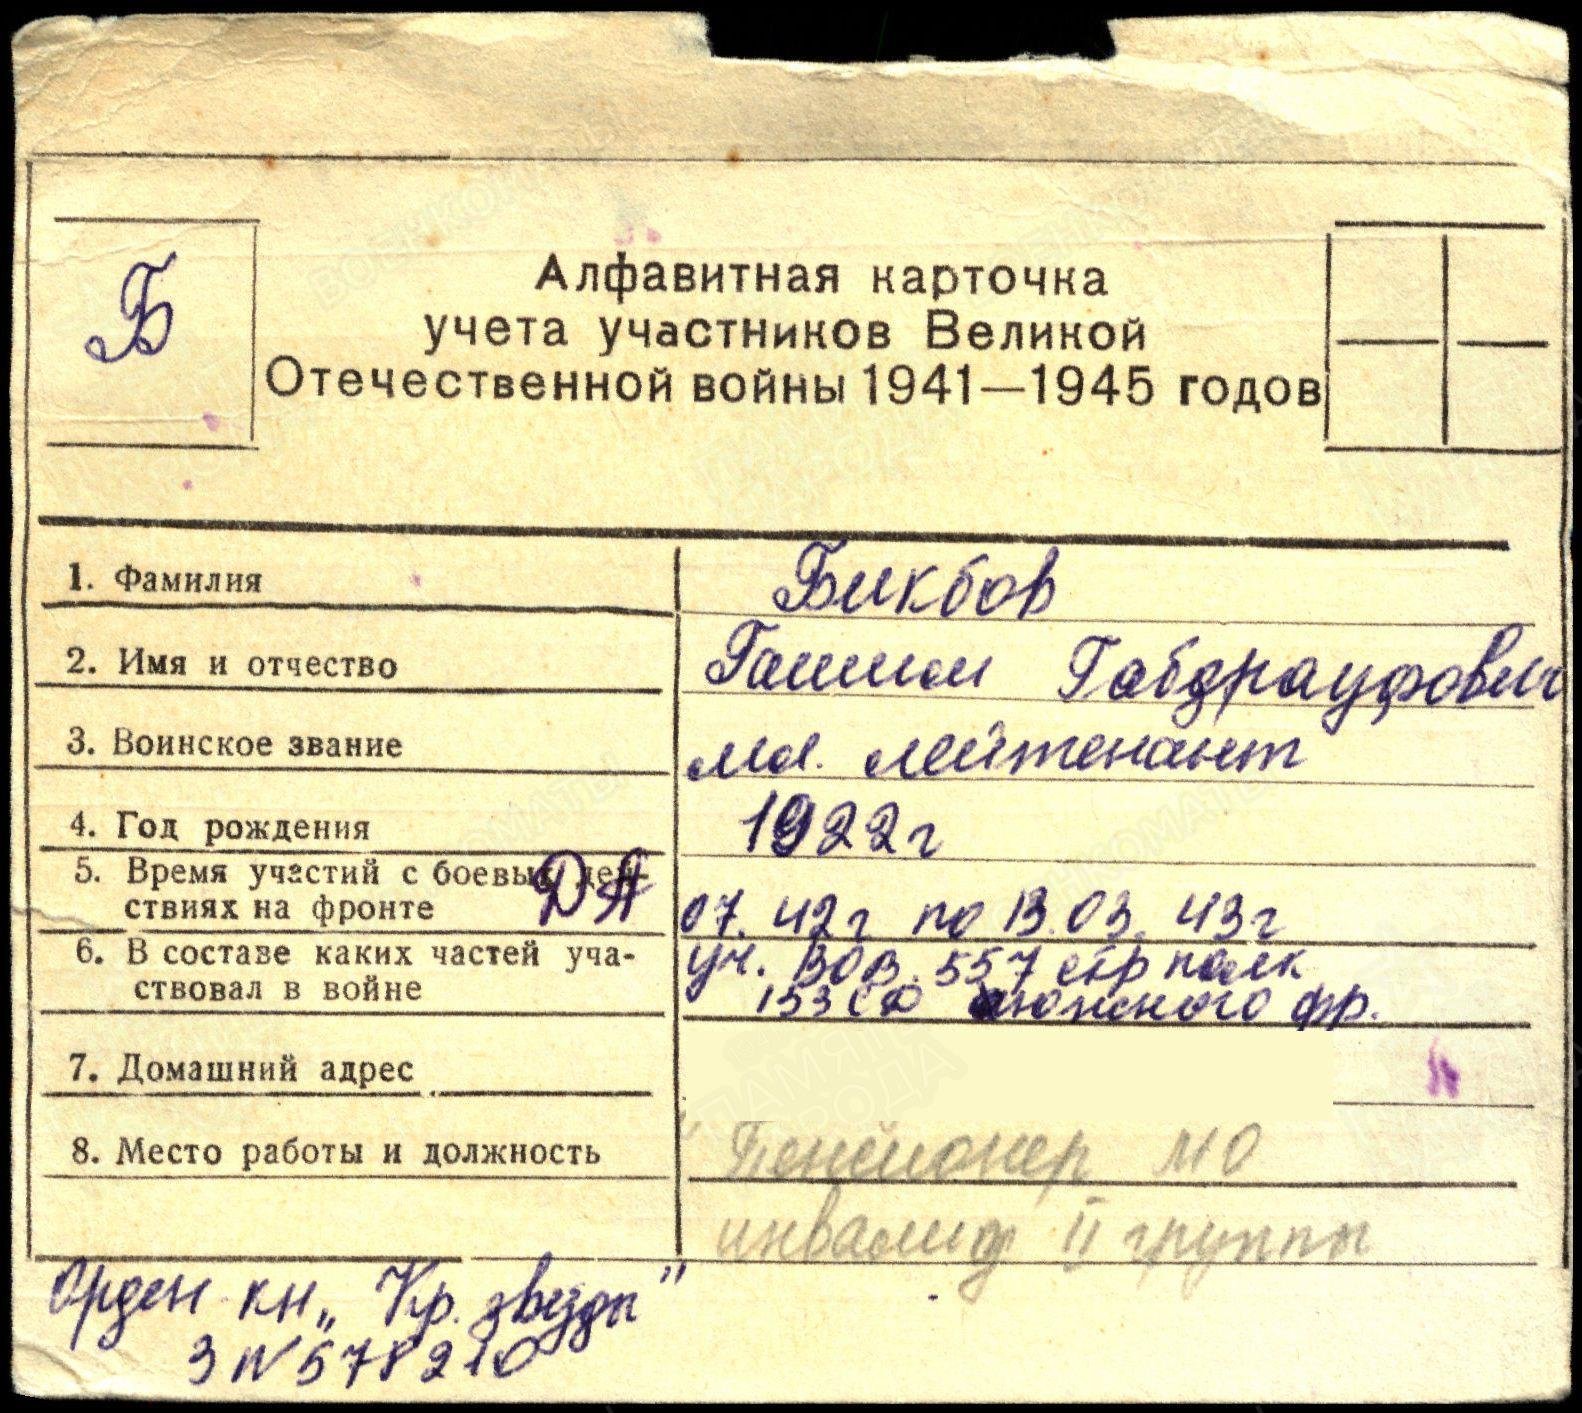 Б
Алфавитная карточка
учета участников Великой
Отечественной войны 1941—1945 годов
1. Фамилия Бикбов
2. Имя и отчество Гашим Габдрауфович
3. Воинское звание мл. лейтенант
4. Год рождения 1922г
5. Время участий с боевых дей-
ствиях на фронте ДА 07. 42г по 13.03. 43г
6. В составе каких частей уча- уч. ВОВ. 557 стр полк
ствовал в войне 153 сд южного фр.
7. Домашний адрес
8. Место работы и должность Пенсионер МО
инвалид II группы
Орден кн „Кр. звезды"
З № 578210